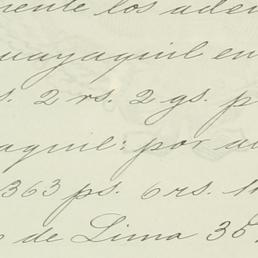 mente los ade
uayaquil en
s. 2 rs. 2 gs. p
aquil; por a
363 ps. 6 rs. 1
de Lima 35